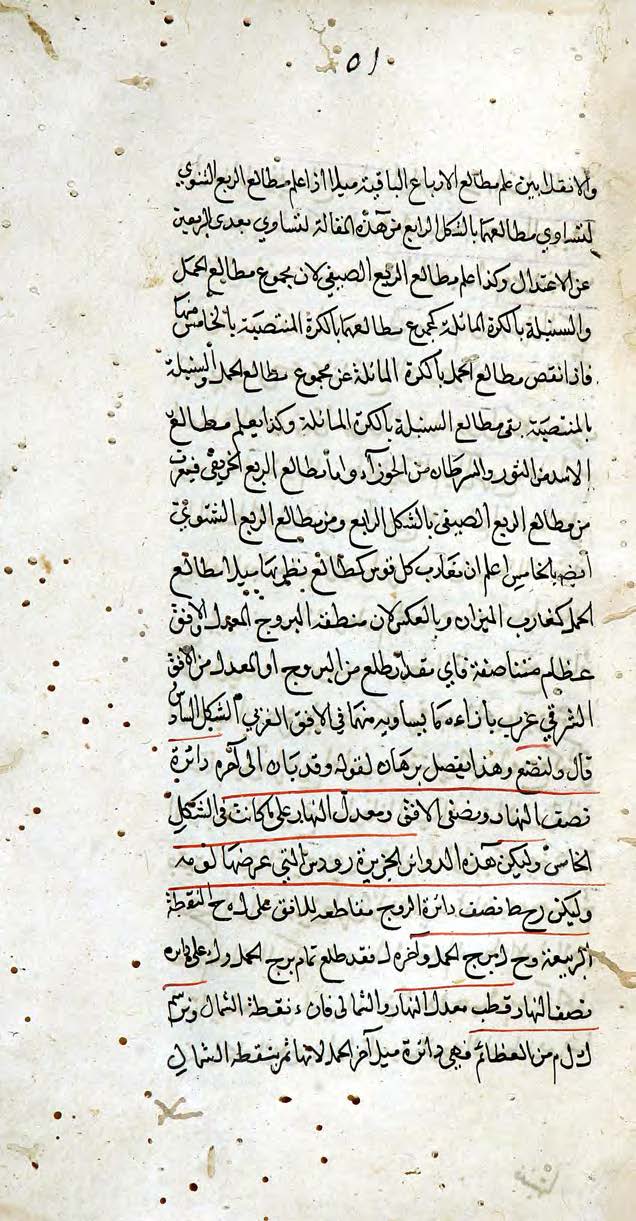 ٥١
والانقلابين علم مطالع الارباع الباقية مثلا اذا علم مطالع الربع الشتوي
لتساوي مطالعهما بالشكل الرابع من هذه المقالة لتساوي بعدى الربعين
عن الاعتدال وكذا علم مطالع الربع الصيفي لان مجموع مطالع الحمل
والسنبلة بالكرة المائلة كمجموع مطالعهما بالكرة المنتصبة بالخامس منها
فاذا نقص مطالع الحمل بالكرة المائلة عن مجموع مطالع الحمل والسنبلة
بالمنتصبة بقي مطالع السنبلة بالكرة المائلة وكذا يعلم مطالع
الاسد من الثور والسرطان من الجوزآء واما مطالع الربع الخريفي فيعرف
من مطالع الربع الصيفي بالشكل الرابع ومن مطالع الربع الشتوي
ايضا بالخامس اعلم ان مغارب كل قوس كمطالع نظيرتها مثلا مطالع
الحمل كمغارب الميزان وبالعكس لان منطقة البروج المعدل والافق
عظام متناصفة فاي مقدار يطلع من البروج او المعدل من الافق
الشرقي غرب بازاءه ما يساويه منهما في الافق الغربي الشكل السادس
قال ولنضع وهذا تفصيل برهان لقوله وقد بان الى آخره دائرة
نصف النهار ونصفى الافق ومعدل النهار على ما كانت في الشكل
الخامس وليكن هذه الدوائر لجزيرة رودس التي عرضها لو مه
وليكن رح ط نصف دائرة البروج مقاطعه للافق على ح النقطة
الربيعية وح ل برج الحمل وآخره ل فقد طلع تمام برج الحمل و على دائره
نصف النهار قطب معدل النهار والشمالى فان نقطة الشمال ونرسم
ك ل م من العظائم فهي دائرة ميل آخر الحمل لانها تمر بنقطه الشمال